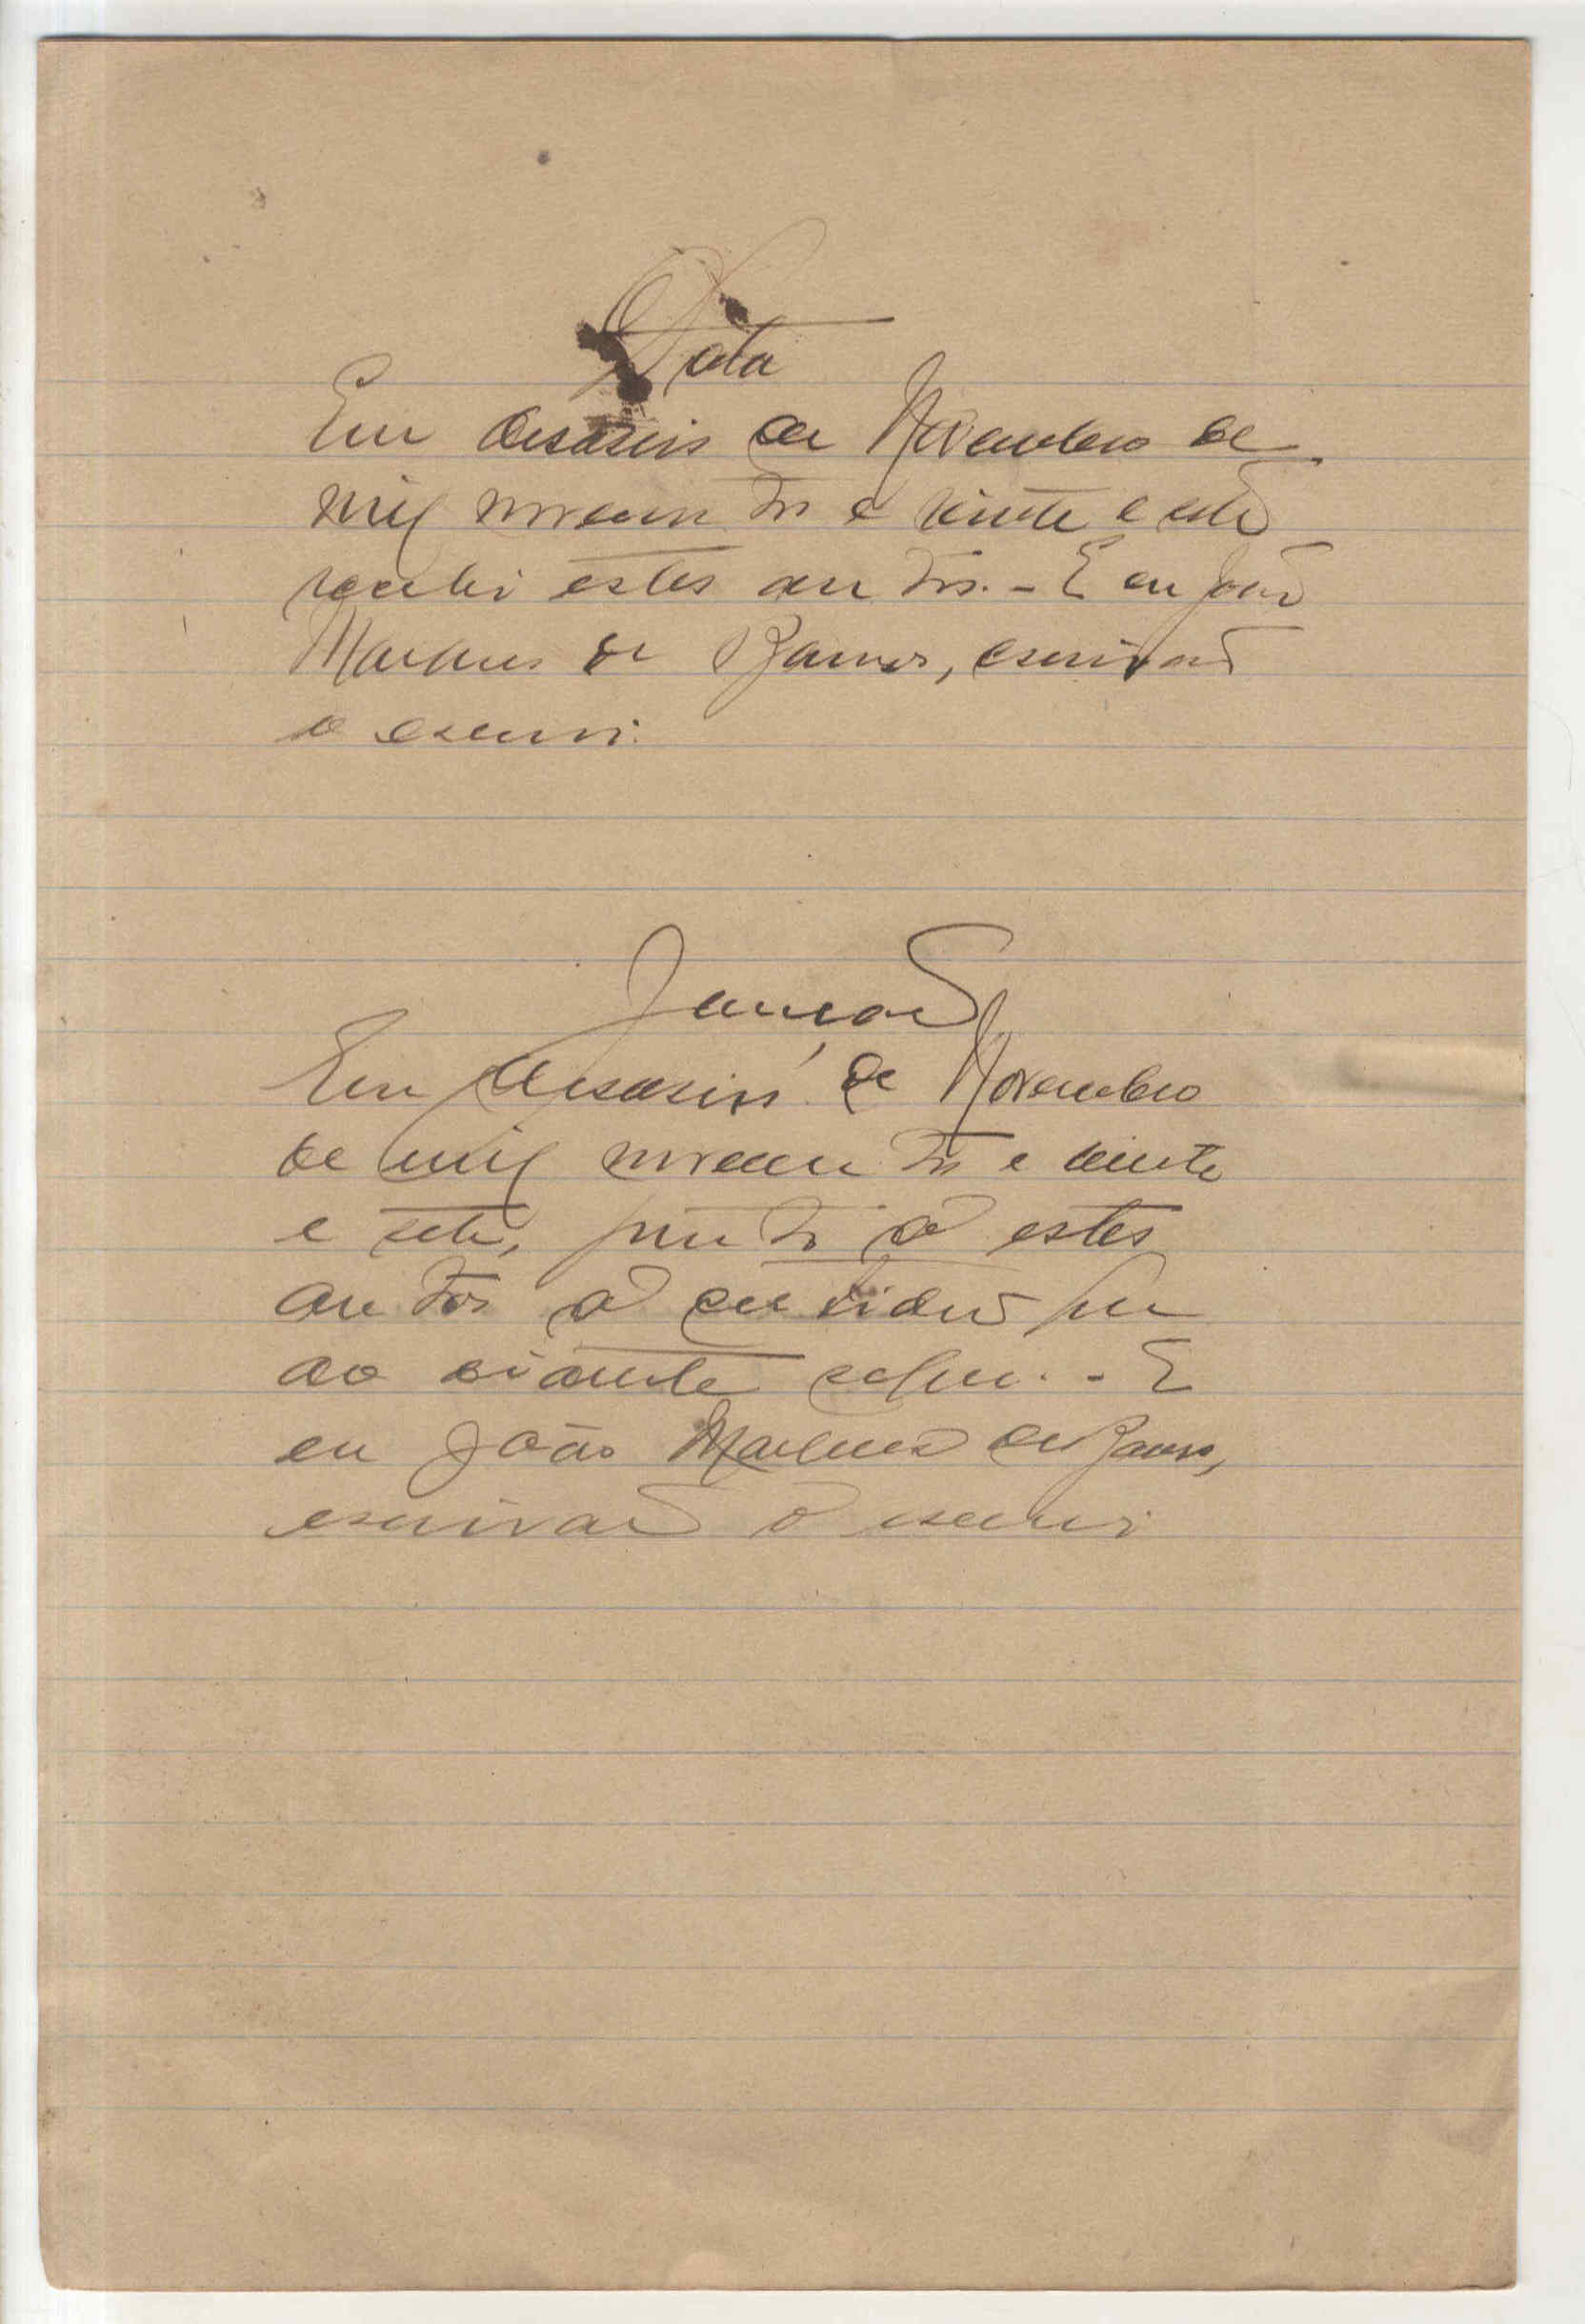 Data
Em desaseis de Novembro de
mil novecentos e vinte e sete
recebi estes autos. - E eu João
Marques de Barros, escrivão
o escrevi.
Juncção
Em desaseis de Novembro
de mil novecentos e vinte
e sete, junto a estes
autos a certidão que
ao diante segue. - E
eu João Marques de Barros,
escrivão o escrevi